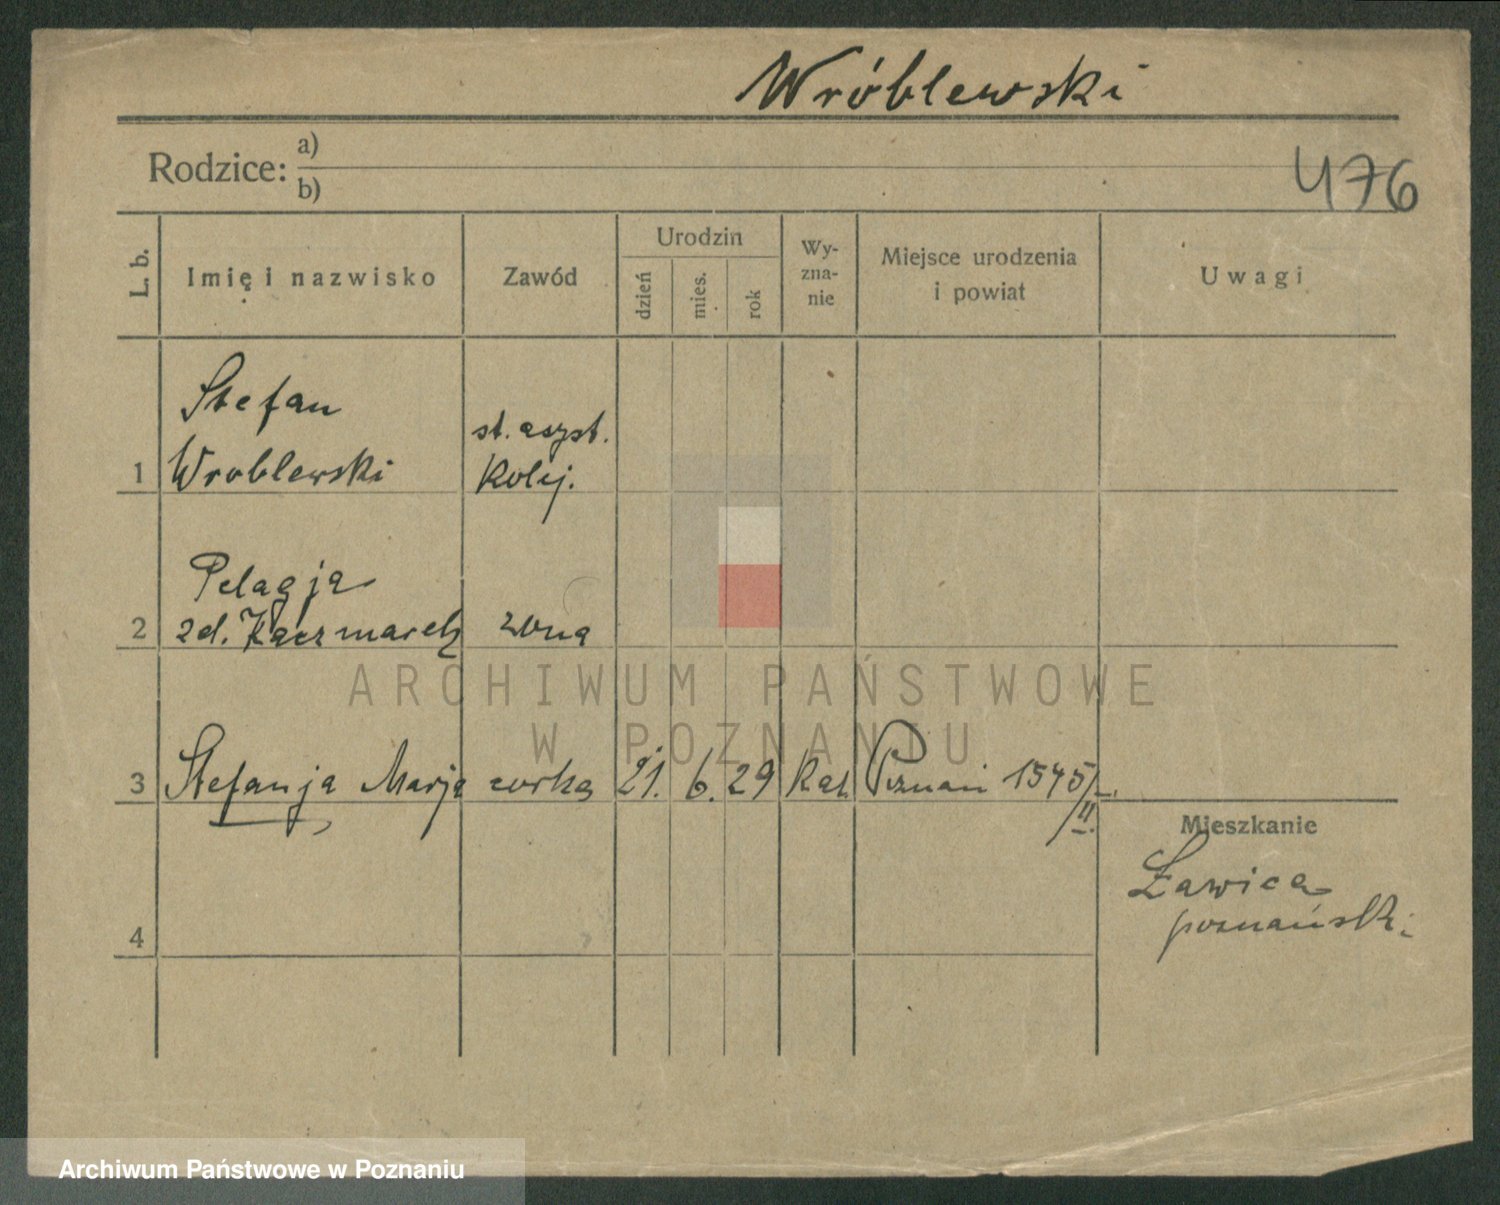 Wróblewski
Rodzice: a)
b)
476
L. b.
Imię i nazwisko
Zawód
Urodzin
dzień
mies.
rok
Wy-
zna-
nie
Miejsce urodzenia
i powiat
Uwagi
1
Stefan
Wroblewski
st. aszst.
Kolej.
2
Pelagja
zd. Kaczmarek
zona
3
Stefanja Marja
corka
21.
6.
29
Kat.
Poznań 1545/
II.
Mieszkanie
Ławica
poznańsk.
4
ARCHIWUM PAŃSTWOWE
W POZNANIU
Archiwum Państwowe w Poznaniu